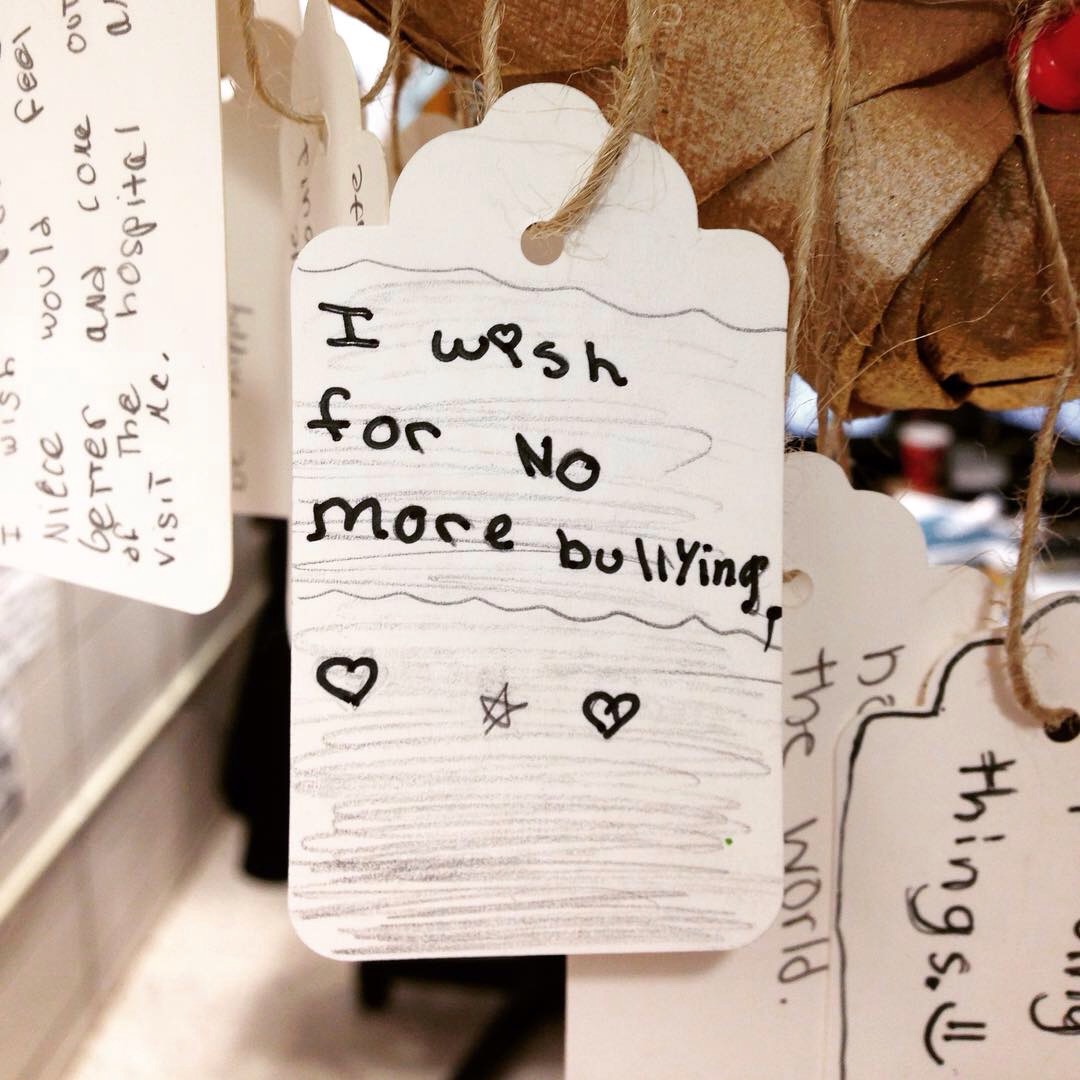 I wish
for No
More bullying!
I wish
Niece would feel
better and come out
of the hospital
visit me.
the world.
things.